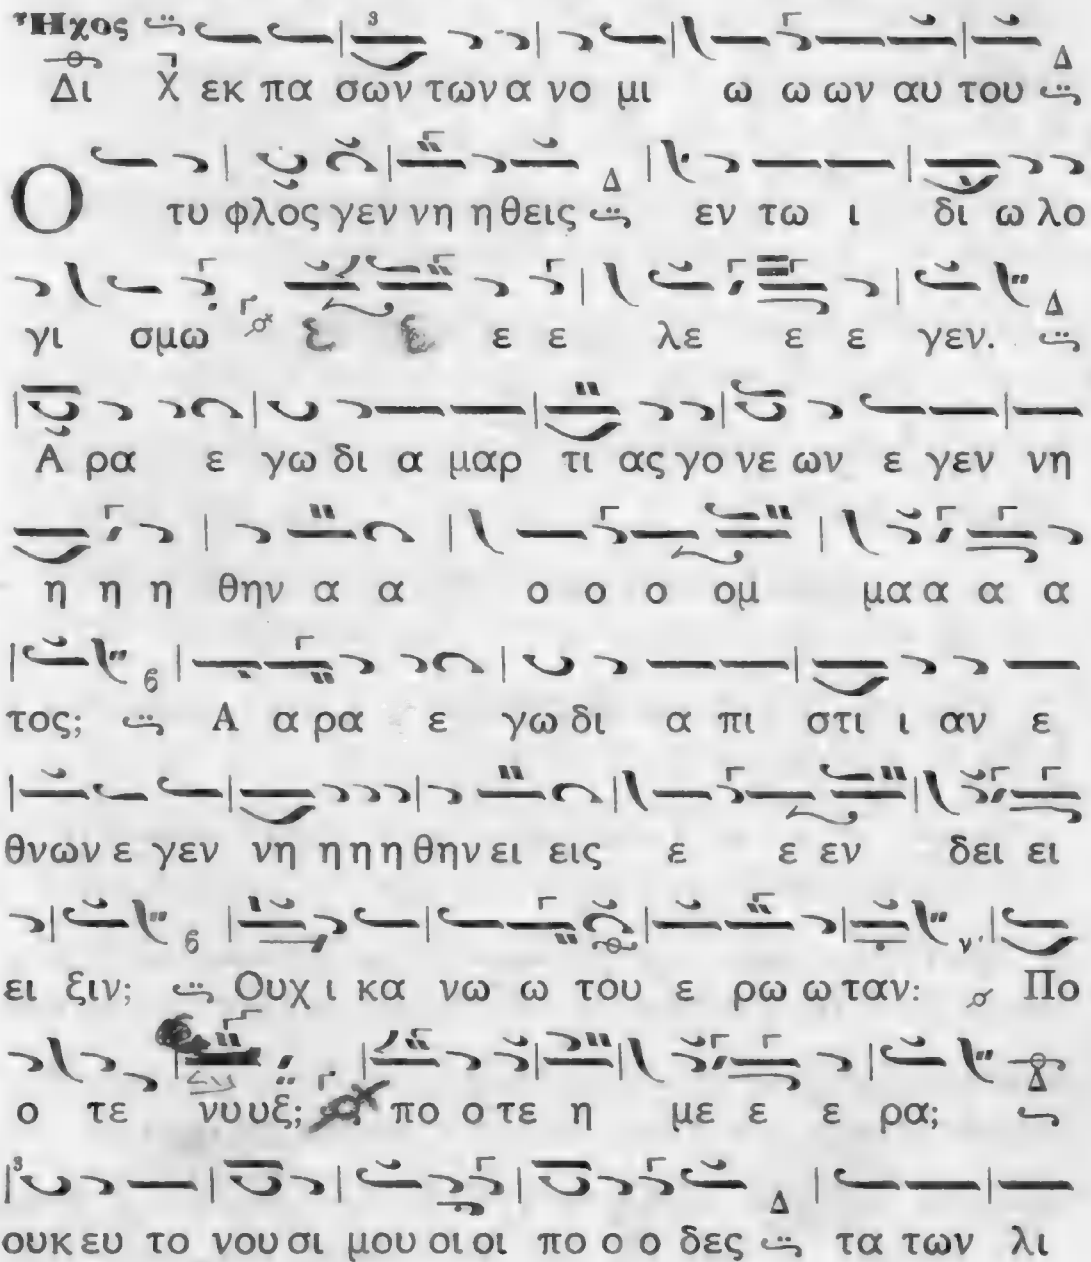 Ἦχος
Δι Χ εκ πα σων των α νο μι ω ω ων αυ του Δ
Ο τυ φλος γεν νη η θεις Δ εν τω ι δι ω λο
γι σμω ε ε ε ε λε ε ε γεν. Δ
Α ρα ε γω δι α μαρ τι ας γο νε ων ε γεν νη
η η η θην α α ο ο ο ομ μα α α α
τος; 6 Α α ρα ε γω δι α πι στι ι αν ε
θνων ε γεν νη η η η θην ει εις ε ε εν δει ει
ει ξιν; 6 Ουχ ι κα νω ω του ε ρω ω ταν: γ' Πο
ο τε νυ υξ; πο ο τε η με ε ε ρα; Δ
ουκ ευ το νου σι μου οι οι πο ο ο δες Δ τα των λι